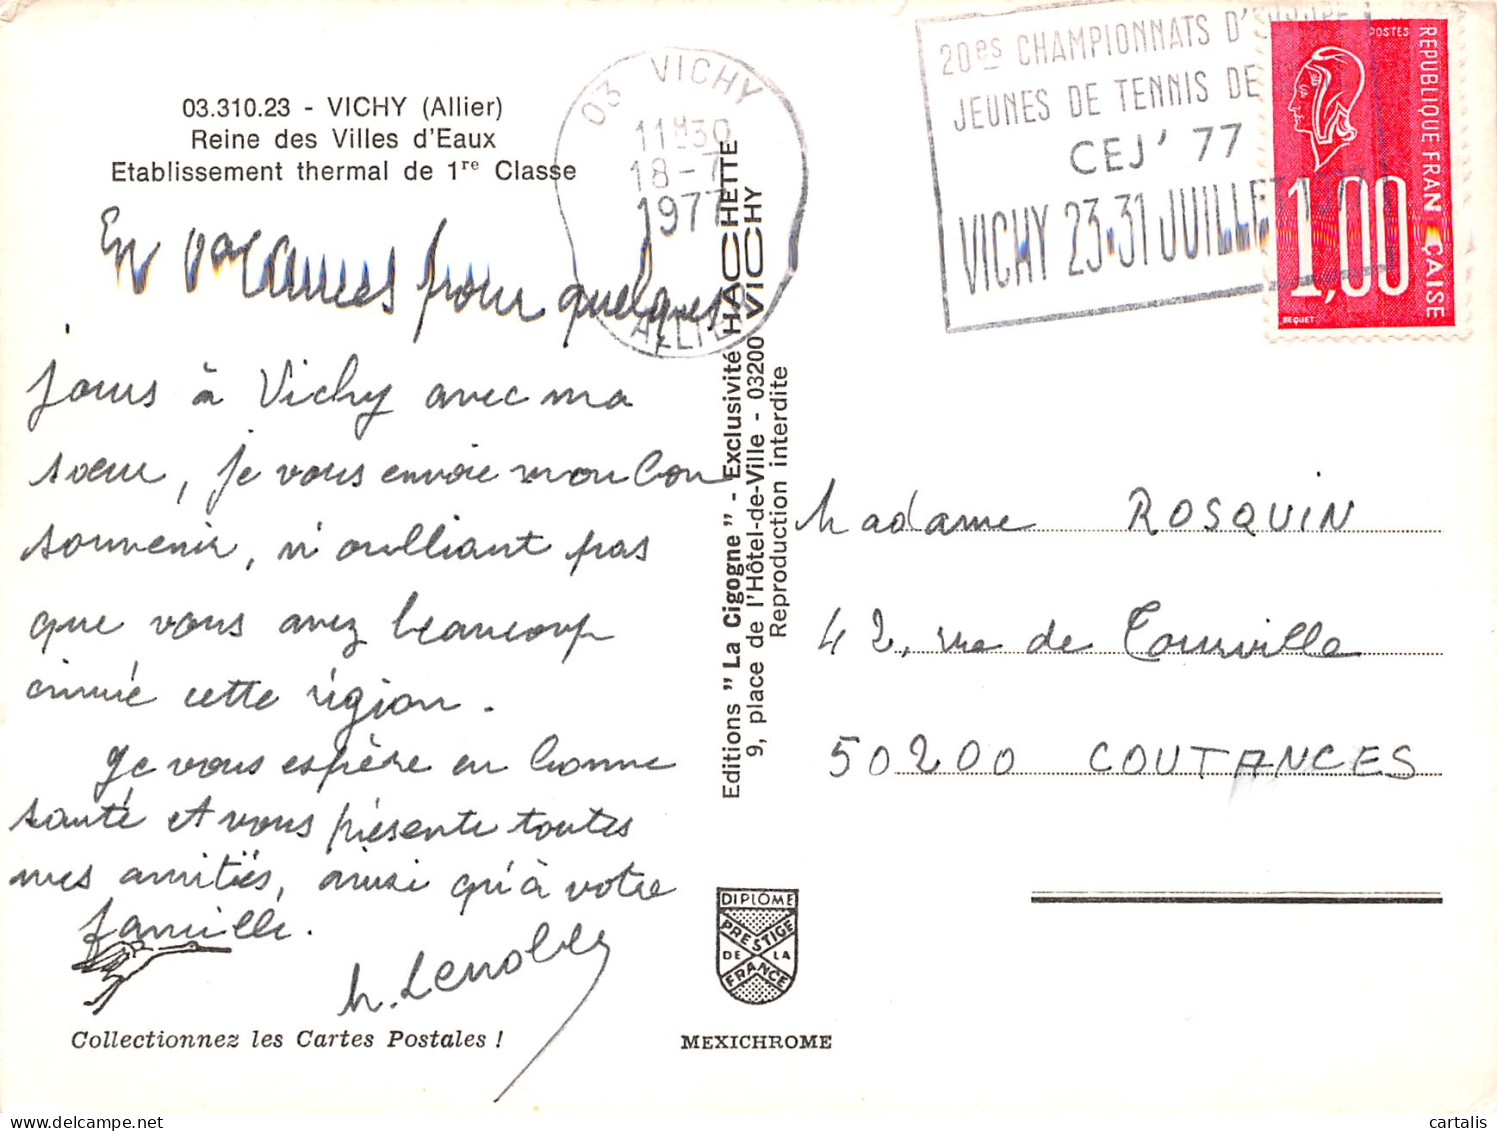 03.310.23 - VICHY (Allier)
Reine des Villes d'Eaux
Etablissement thermal de 1re Classe
En vacances pour quelques
jours à Vichy avec ma
sœur, je vous envoie mon bon
souvenir, n'oubliant pas
que vous avez beaucoup
aimé cette région.
Je vous espère en bonne
santé et vous présente toutes
mes amitiés, ainsi qu'à votre
famille.
Collectionnez les Cartes Postales !
03 VICHY
11H30
18-7
1977
ALLIER
20es CHAMPIONNATS D'EUROPE
JEUNES DE TENNIS DE
CEJ' 77
VICHY 23.31 JUILLET 1977
POSTES
REPUBLIQUE FRANÇAISE
1,00
BEQUET
Editions " La Cigogne " - Exclusivité HACHETTE
9, place de l'Hôtel-de-Ville - 03200 VICHY
Reproduction interdite
Madame ROSQUIN
42, rue de Tourville
50200 COUTANCES
DIPLÔME
PRESTIGE
DE LA
FRANCE
MEXICHROME
cartalis